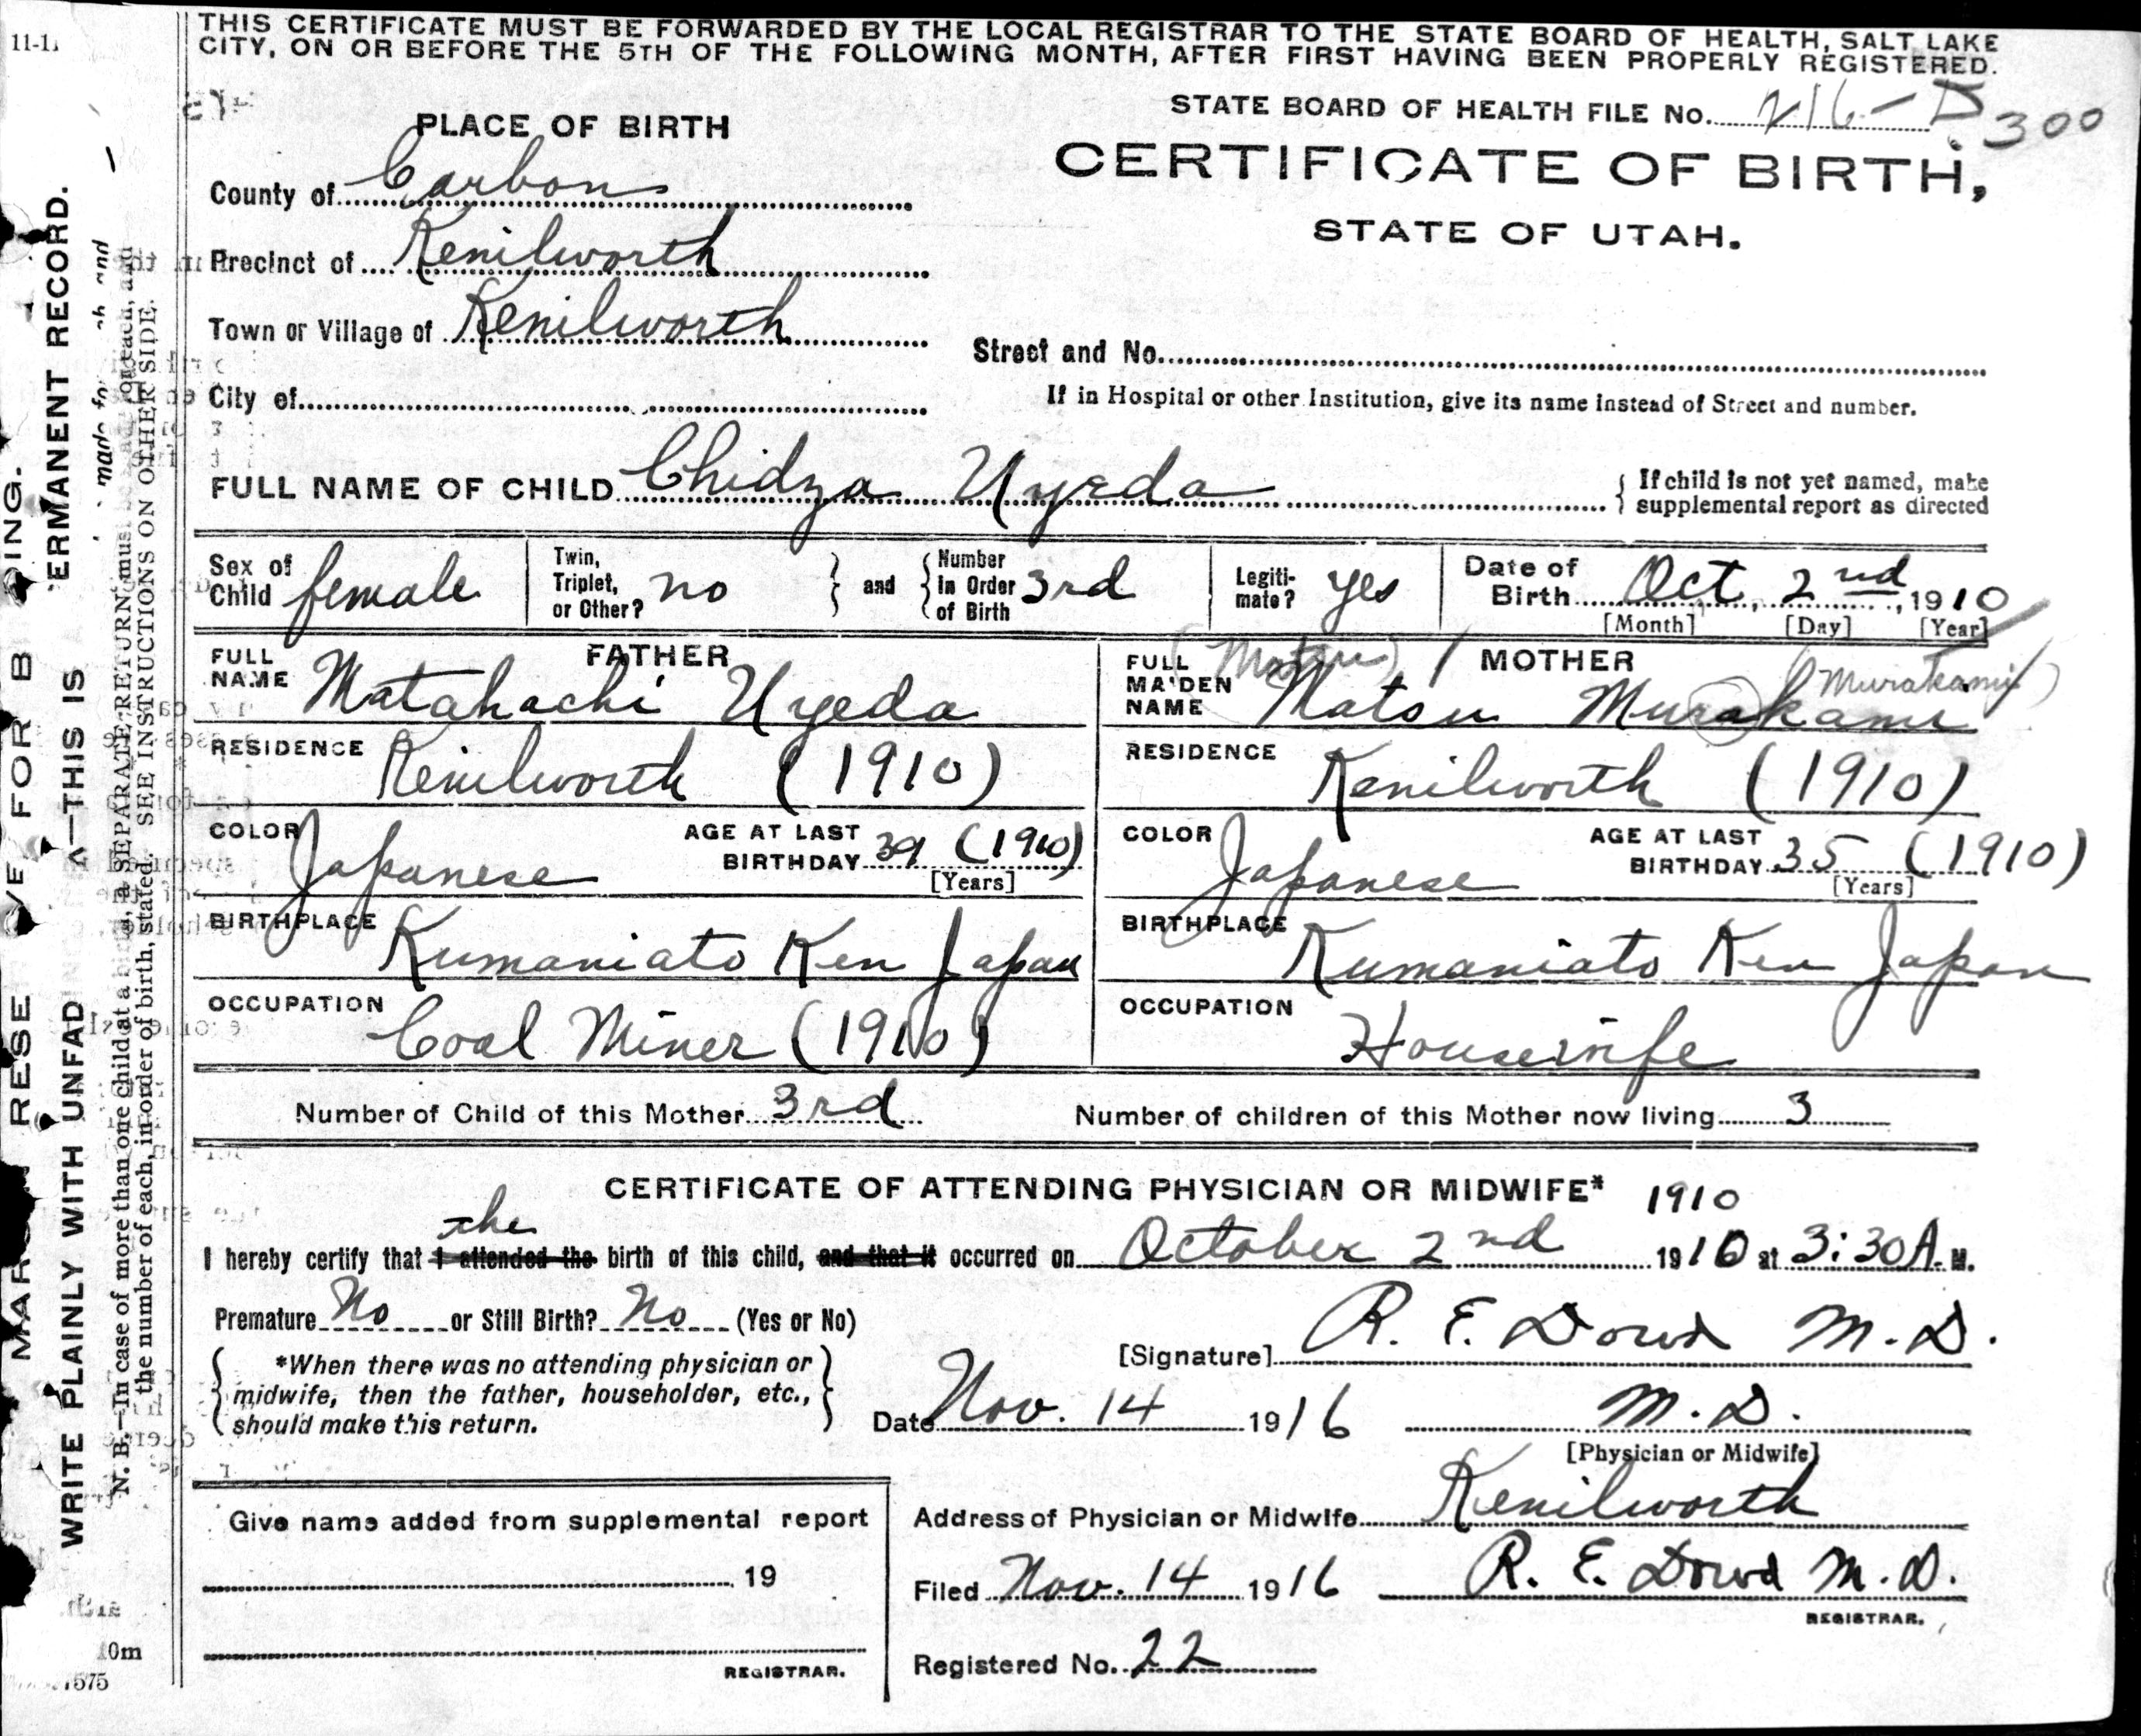 THIS CERTIFICATE MUST BE FORWARDED BY THE LOCAL REGISTRAR TO THE STATE BOARD OF HEALTH, SALT LAKE
CITY, ON OR BEFORE THE 5TH OF THE FOLLOWING MONTH, AFTER FIRST HAVING BEEN PROPERLY REGISTERED.
STATE BOARD OF HEALTH FILE No. 216-D 300
CERTIFICATE OF BIRTH,
STATE OF UTAH.
PLACE OF BIRTH
County of Carbon
Precinct of Kenilworth
Town or Village of Kenilworth
City of
Street and No.
If in Hospital or other Institution, give its name instead of Street and number.
FULL NAME OF CHILD Chidza Uyeda
If child is not yet named, make
supplemental report as directed
Sex of Child female
Twin, Triplet, or Other? no
and Number in Order of Birth 3rd
Legitimate? yes
Date of Birth Oct, 2nd, 1910
[Month] [Day] [Year]
FATHER
FULL NAME Matahachi Uyeda
RESIDENCE Kenilworth (1910)
COLOR Japanese
AGE AT LAST BIRTHDAY 39 (1910)
[Years]
BIRTHPLACE Kumaniato Ken Japan
OCCUPATION Coal Miner (1910)
MOTHER
(Matsu) (Murakami)
FULL MAIDEN NAME Natsu Murakami
RESIDENCE Kenilworth (1910)
COLOR Japanese
AGE AT LAST BIRTHDAY 35 (1910)
[Years]
BIRTHPLACE Kumaniato Ken Japan
OCCUPATION Housewife
Number of Child of this Mother 3rd
Number of children of this Mother now living 3
CERTIFICATE OF ATTENDING PHYSICIAN OR MIDWIFE* 1910
the
I hereby certify that I attended the birth of this child, and that it occurred on October 2nd 1910 at 3:30 A. M.
Premature No or Still Birth? No (Yes or No)
*When there was no attending physician or
midwife, then the father, householder, etc.,
should make this return.
[Signature] R. E. Dowd M.D.
Date Nov. 14 1916 M.D.
[Physician or Midwife]
Give name added from supplemental report
19
REGISTRAR.
Address of Physician or Midwife Kenilworth
Filed Nov. 14 1916 R. E. Dowd M.D.
REGISTRAR.
Registered No. 22
WRITE PLAINLY WITH UNFAD
THIS IS
ERMANENT RECORD.
N. B.—In case of more than one child at a birth, a SEPARATE RETURN must be made for each, and
the number of each, in order of birth, stated. SEE INSTRUCTIONS ON OTHER SIDE.